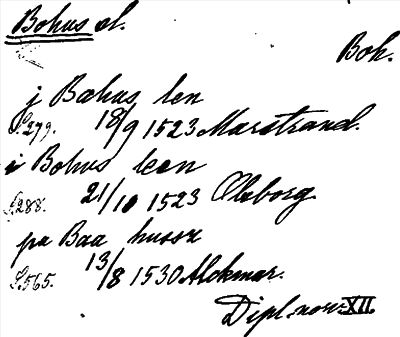 Bohus sl.
Boh.
j Bahus len
S.279. 18/9 1523 Marstrand.
i Bohus leen
S.288. 21/10 1523 Olzborg
pa Baa hussz
S.565. 13/8 1530 Alckmar.
Dipl. norv. XII.